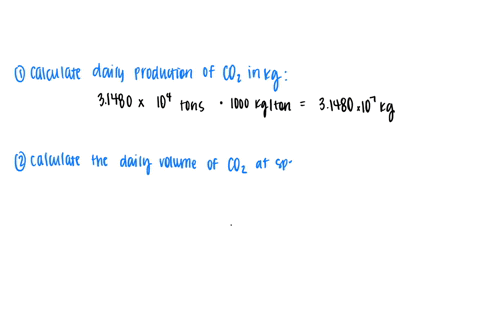 ① Calculate daily production of CO₂ in kg:
3.1480 x 10⁴ tons · 1000 kg/ton = 3.1480 x 10⁷ kg
② Calculate the daily volume of CO₂ at sp